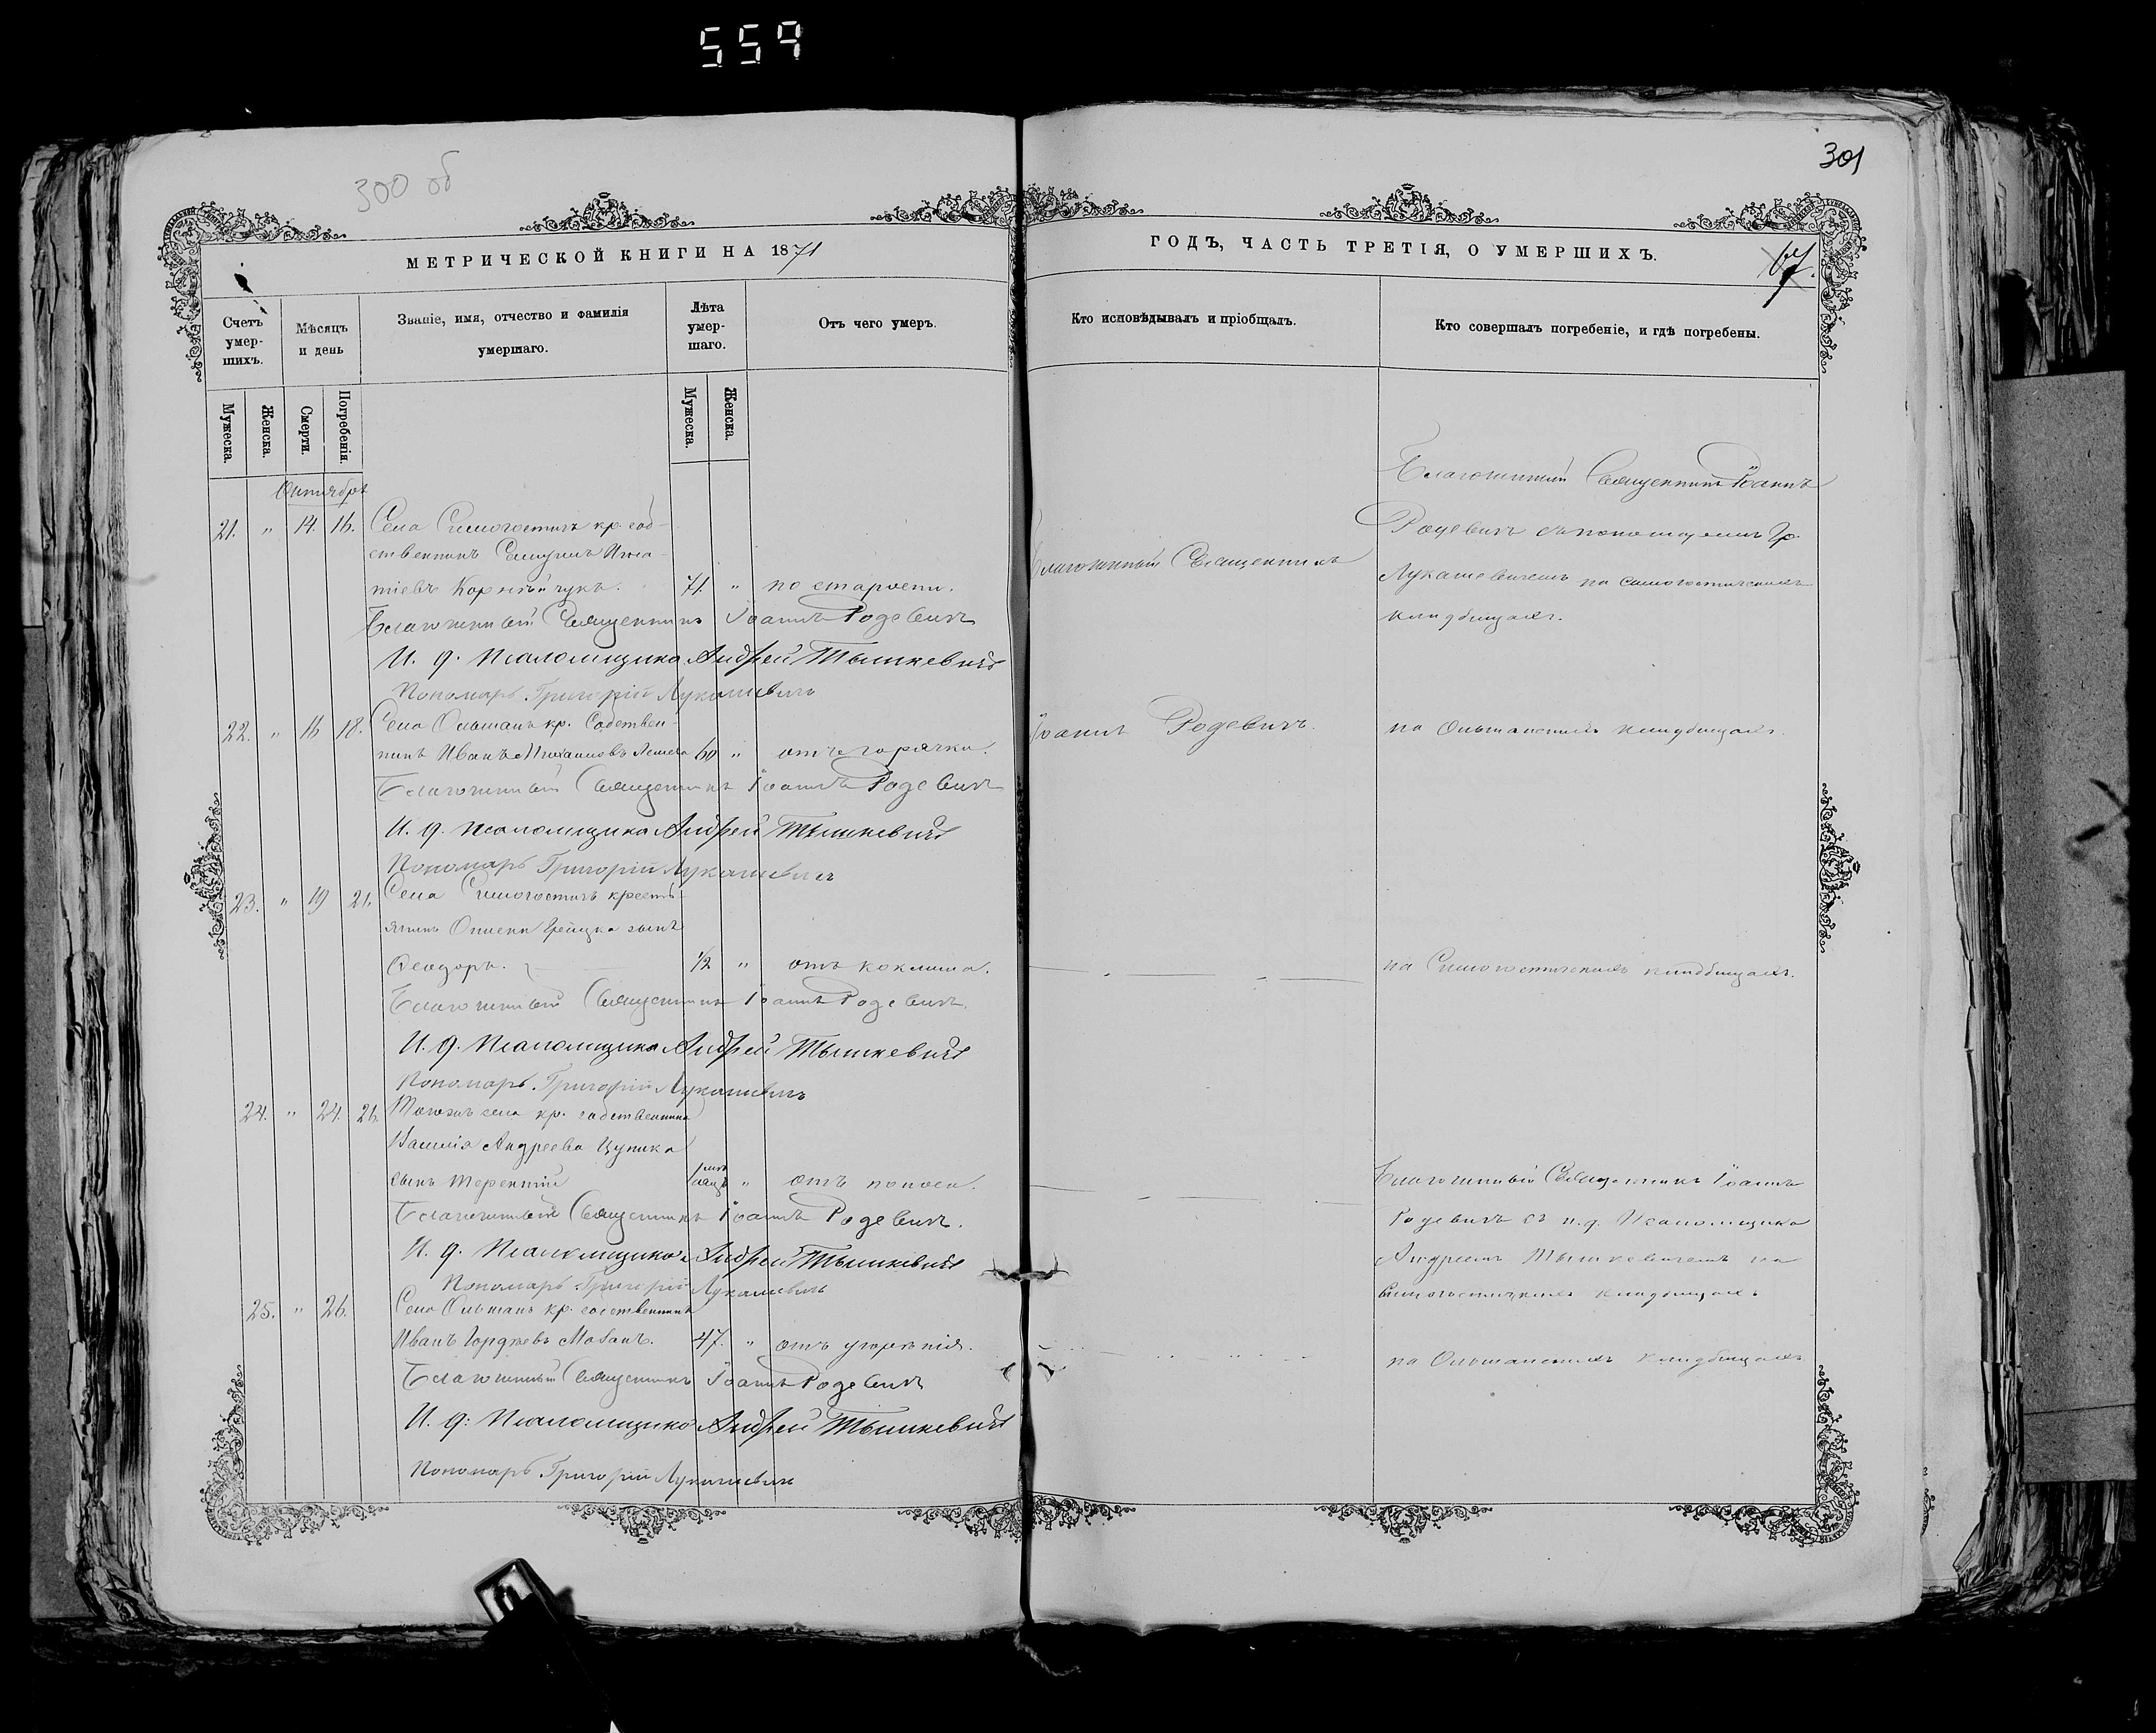 559
300 об
301
МЕТРИЧЕСКОЙ КНИГИ НА 1871
ГОДЪ, ЧАСТЬ ТРЕТІЯ, О УМЕРШИХЪ.
Счетъ умер-шихъ.
Мѣсяцъ и день
Званіе, имя, отчество и фамилія умершаго.
Лѣта умер-шаго.
Отъ чего умеръ.
Кто исповѣдывалъ и пріобщалъ.
Кто совершалъ погребеніе, и гдѣ погребены.
Мужеска.
Женска.
Смерти.
Погребенія.
Мужеска.
Женска.
Октябрь
Благочинный Священникъ Іоаннъ
21. " 14. 16. Села Симоновичъ кр. соб-
Родевичъ съ пономаремъ Гр.
ственникъ Самуилъ Игна-
Благочинный Священникъ
тіевъ Корнѣйчукъ. 71. " по старости.
Лукашевичемъ на
кладбищахъ.
Благочинный Священникъ Іоаннъ Родевичъ
И. д. Псаломщика Андрей Тышкевичъ
Пономарь Григорій Лукашевичъ
22. " 16 18. Села Ольшанъ кр. Собствен-
Іоаннъ Родевичъ.
на Ольшанскихъ кладбищахъ.
никъ Иванъ Михаиловъ 60 " отъ горячки.
Благочинный Священникъ Іоаннъ Родевичъ
И. д. Псаломщика Андрей Тышкевичъ
Пономарь Григорій Лукашевичъ
23. " 19 21. Села кресть-
янина сынъ
Ѳеодоръ. 1/2 " отъ коклюша.
кладбищахъ.
Благочинный Священникъ Іоаннъ Родевичъ.
И. д. Псаломщика Андрей Тышкевичъ
Пономарь Григорій Лукашевичъ
24. " 24. 26. Тогожъ села кр. собственника
Василія Андреева Цупика
сынъ Терентій " отъ поноса.
Благочинный Священникъ Іоаннъ
Благочинный Священникъ Іоаннъ Родевичъ.
Родевичъ съ и. д. Псаломщика
И. д. Псаломщика Андрей Тышкевичъ
Андреемъ Тышкевичемъ на
Пономарь Григорій Лукашевичъ
кладбищахъ
25. " 26. Села Ольшанъ кр. собственникъ
Иванъ 47. " отъ угорѣнія.
на Ольшанскихъ кладбищахъ
Благочинный Священникъ Іоаннъ Родевичъ
И. д: Псаломщика Андрей Тышкевичъ
Пономарь Григорій Лукашевичъ